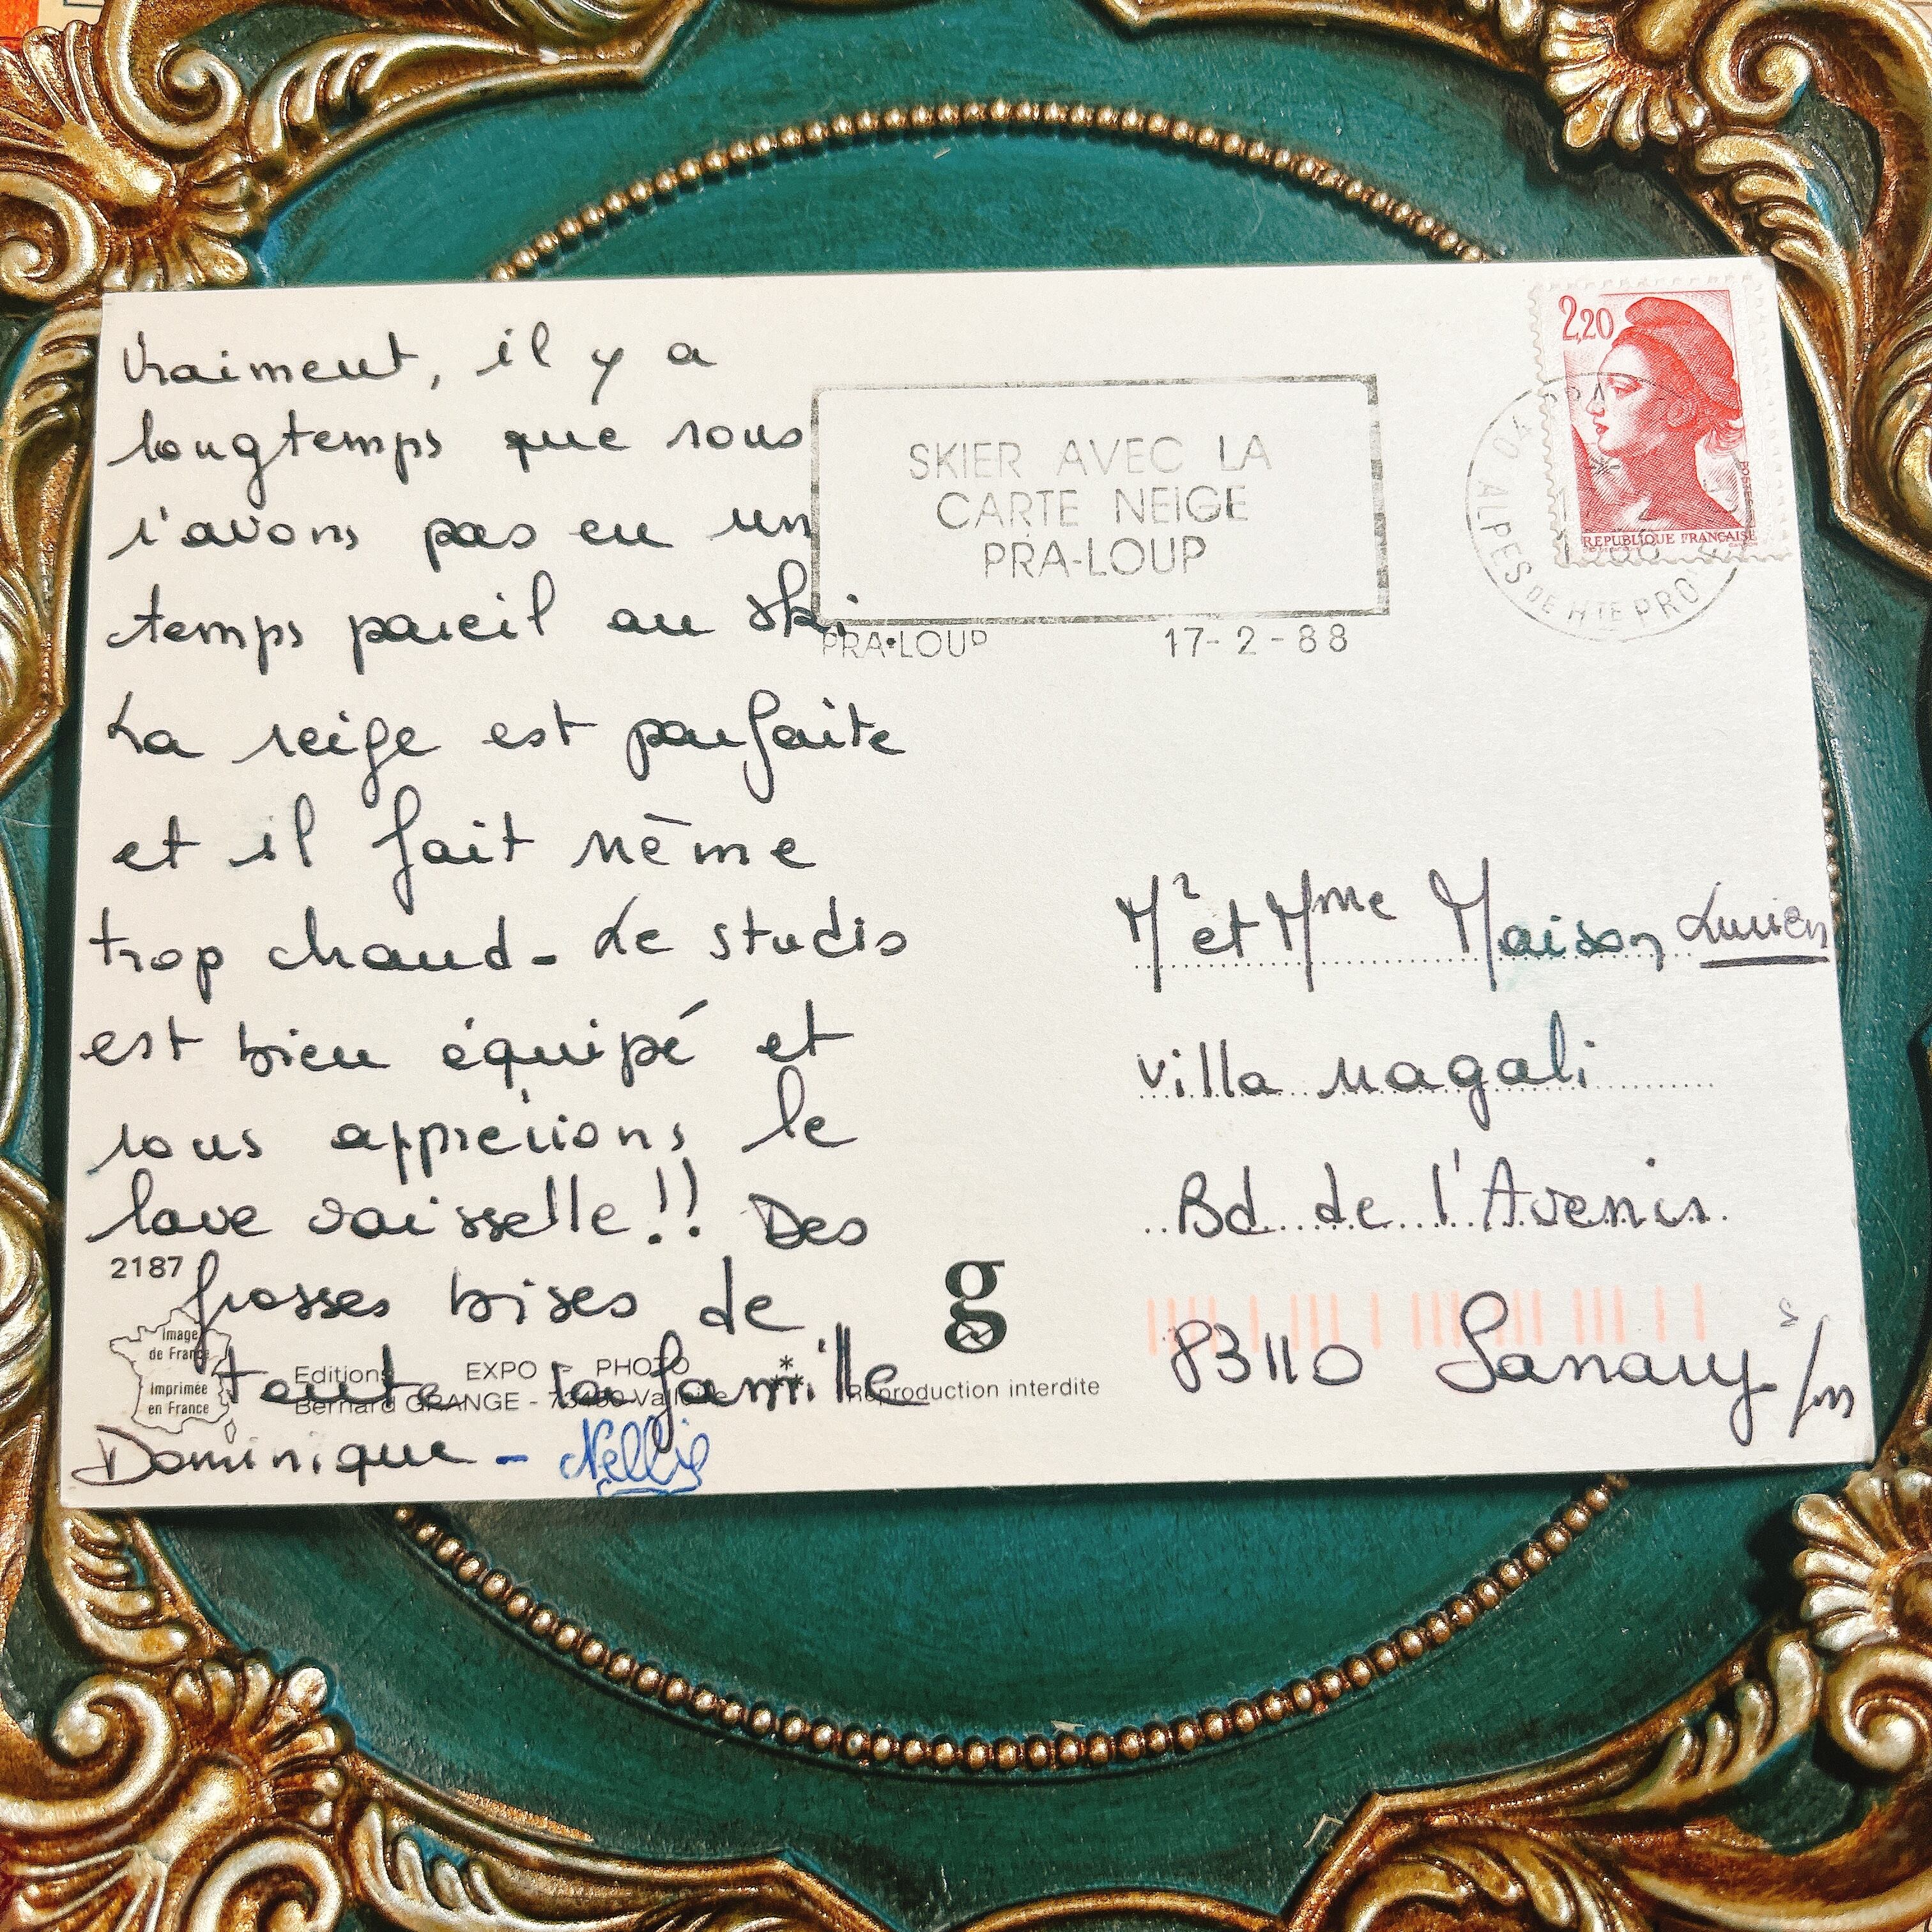 Vraiment, il y a
longtemps que nous
n'avons pas eu un
temps pareil au ski.
La neige est parfaite
et il fait même
trop chaud - Le studio
est bien équipé et
nous apprécions le
lave vaisselle !! Des
grosses bises de
toute la famille
Dominique - Nellie
2187
Image
de France
Imprimée
en France
Editions EXPO - PHOTO
Bernard GRANGE - 73450 Valloire
Reproduction interdite
g
SKIER AVEC LA
CARTE NEIGE
PRA-LOUP
PRA-LOUP 17-2-88
2,20
POSTES
REPUBLIQUE FRANÇAISE
ALPES DE HTE PRO
Mr et Mme Maison Lucien
Villa Magali
Bd de l'Avenir
83110 Sanary s/m